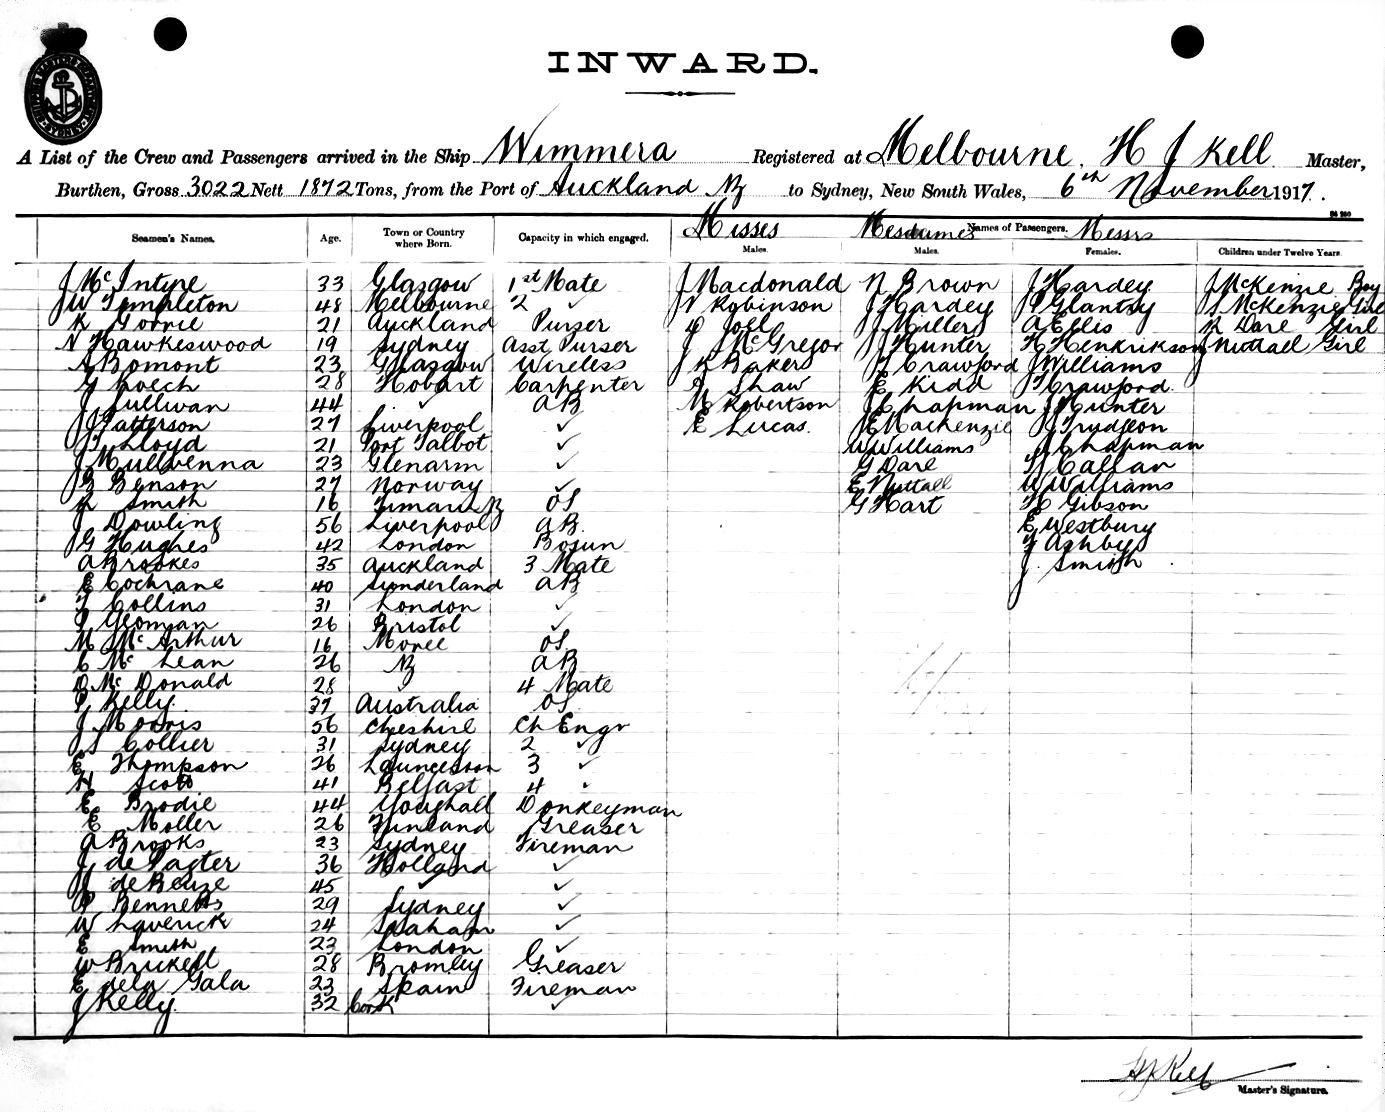 INWARD.
A List of the Crew and Passengers arrived in the Ship Wimmera Registered at Melbourne. H J Kell Master,
Burthen, Gross 3022 Nett 1892 Tons, from the Port of Auckland NZ to Sydney, New South Wales, 6th November 1917.
Seamen's Names. Age. Town or Country where Born. Capacity in which engaged. Names of Passengers.
Misses Mesdames Messrs
Males. Males. Females. Children under Twelve Years.
J McIntyre 33 Glasgow 1st Mate J Macdonald N Brown J Hardey J McKenzie Boy
JW Templeton 48 Melbourne 2 ✓ N Robinson J Hardey P Glantsy S McKenzie Girl
21 Auckland Purser Joll J Miller A Ellis Dare Girl
N Hawkeswood 19 Sydney Asst Purser J McGregor J Hunter H Henrikson Nuttall Girl
A Bomont 23 Glasgow Wireless K Baker Crawford J Williams
28 Hobart Carpenter Shaw E Kidd Crawford
J Sullivan 44 ✓ AB M Robertson J Chapman J Hunter
J Patterson 27 Liverpool ✓ E Lucas. Mackenzie Trudgeon
Lloyd 21 Port Talbot ✓ W Williams Chapman
J Mullvenna 23 Glenarm ✓ G Dare Callan
Benson 27 Norway ✓ E Nuttall W Williams
Smith 16 Timaru NZ OS G Hart H Gibson
J Dowling 56 Liverpool AB. E Westbury
G Hughes 42 London Bosun Ashby
A Brookes 35 Auckland 3 Mate J. Smith
E Cochrane 40 Sunderland AB
T Collins 31 London ✓
Yeoman 26 Bristol ✓
M McArthur 16 Moree OS
C McLean 26 NZ AB
D McDonald 28 ✓ 4 Mate
P Kelly. 37 Australia OS
J Morris 56 Cheshire Ch Engr
S Collier 31 Sydney 2 ✓
E Thompson 26 Launceston 3 ✓
H Scott 41 Belfast 4 ✓
E Brodie 44 Youghall Donkeyman
E Moller 26 Finland Greaser
A Brooks 23 Sydney Fireman
J de Pagter 36 Holland ✓
de Beuze 45 ✓ ✓
P Bennetts 29 Sydney ✓
W Laverick 24 ✓
E Smith 23 London ✓
W Brickell 28 Bromley Greaser
E dela Gala 23 Spain Fireman
J Kelly. 32 Cork ✓
HJ Kell
Master's Signature.